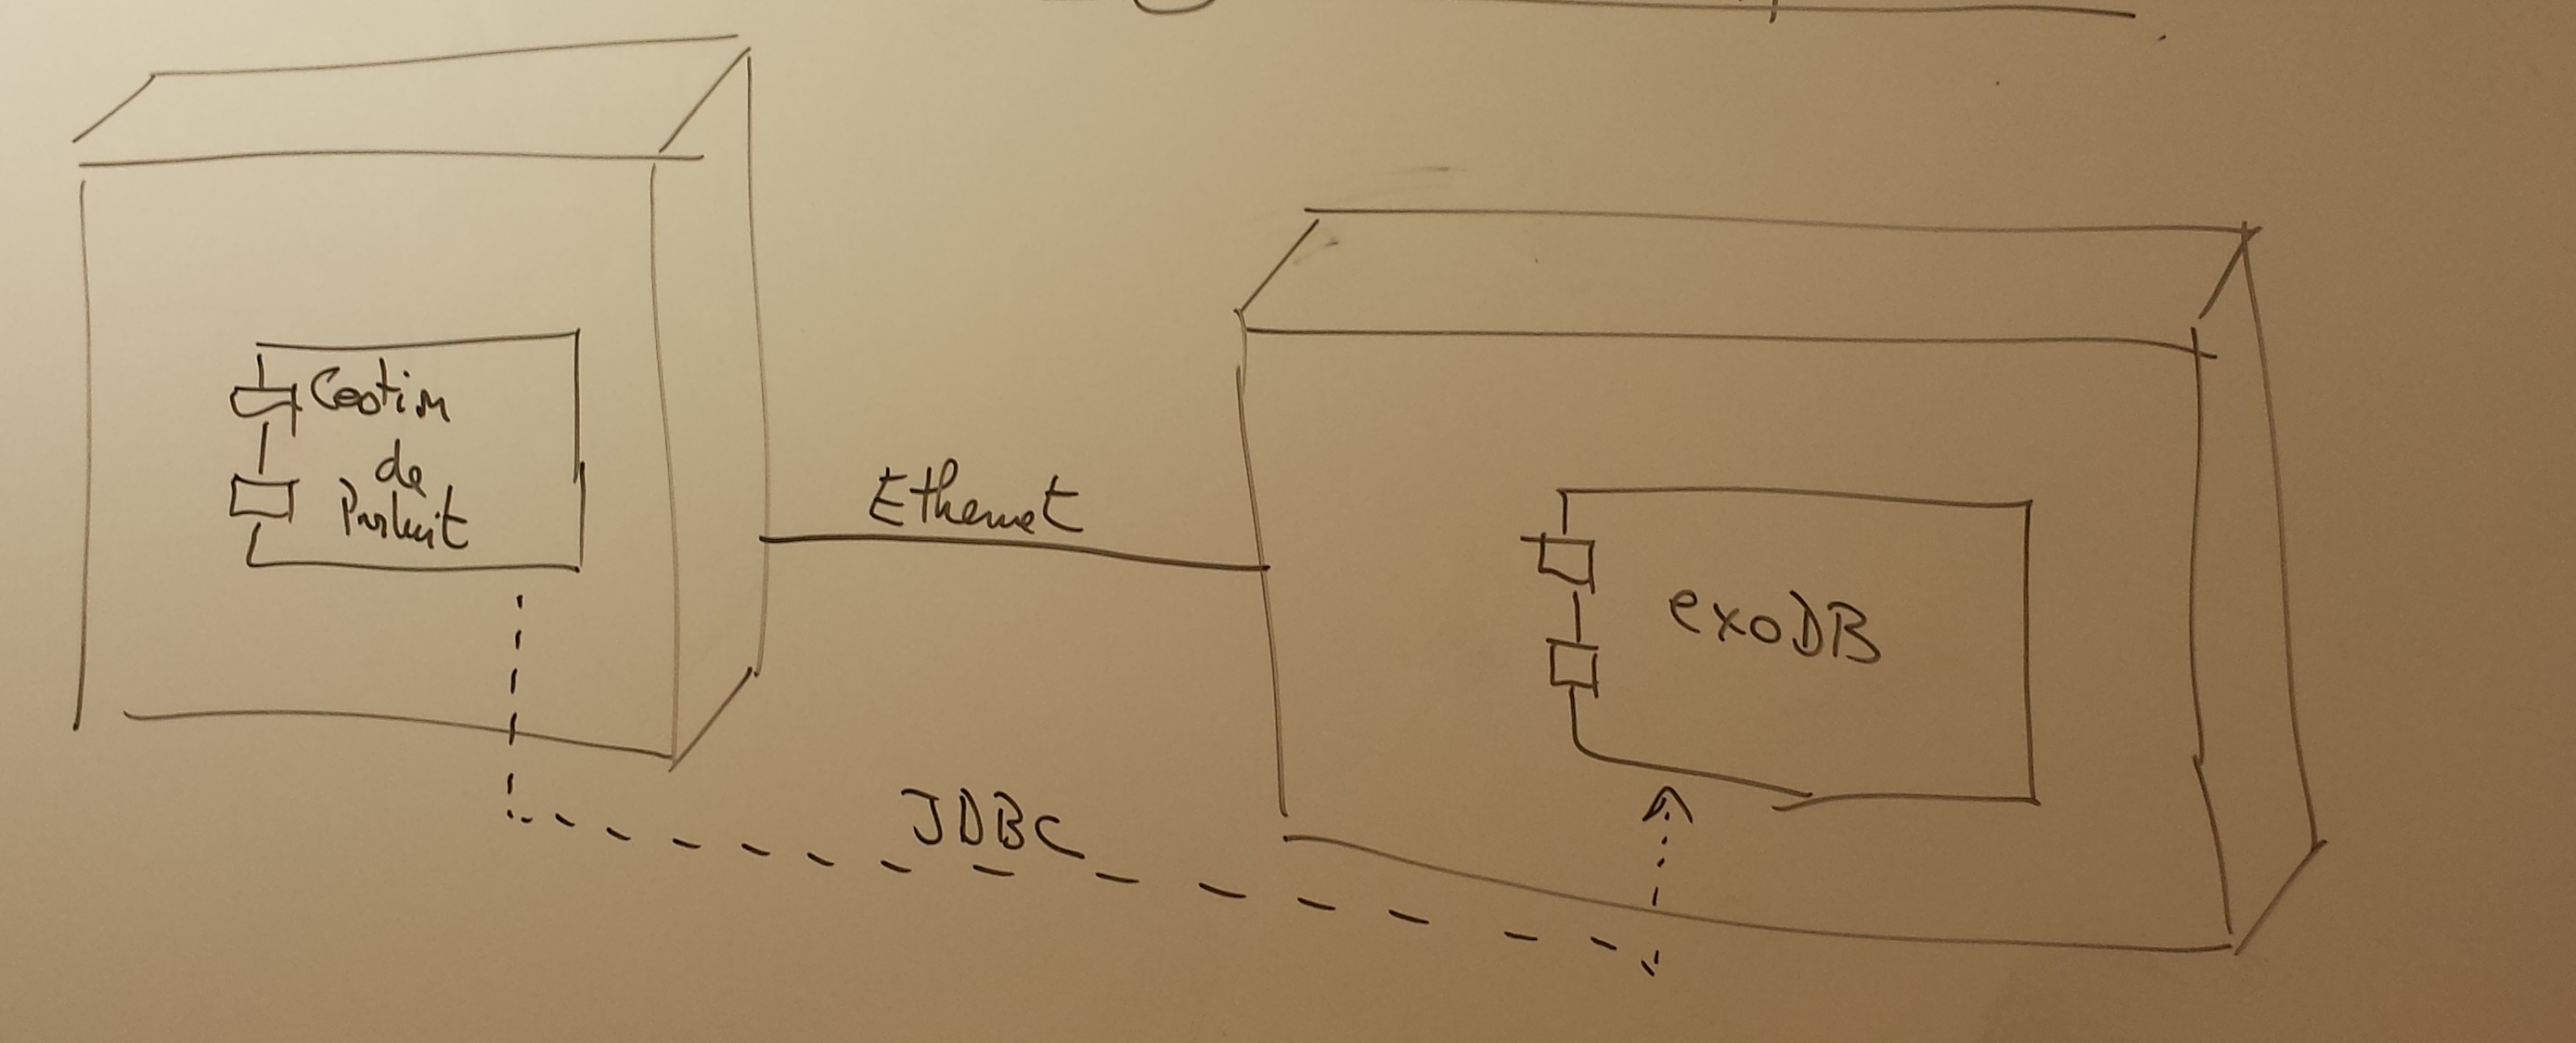 Gestion
de
Produit
Ethernet
exoDB
JDBC